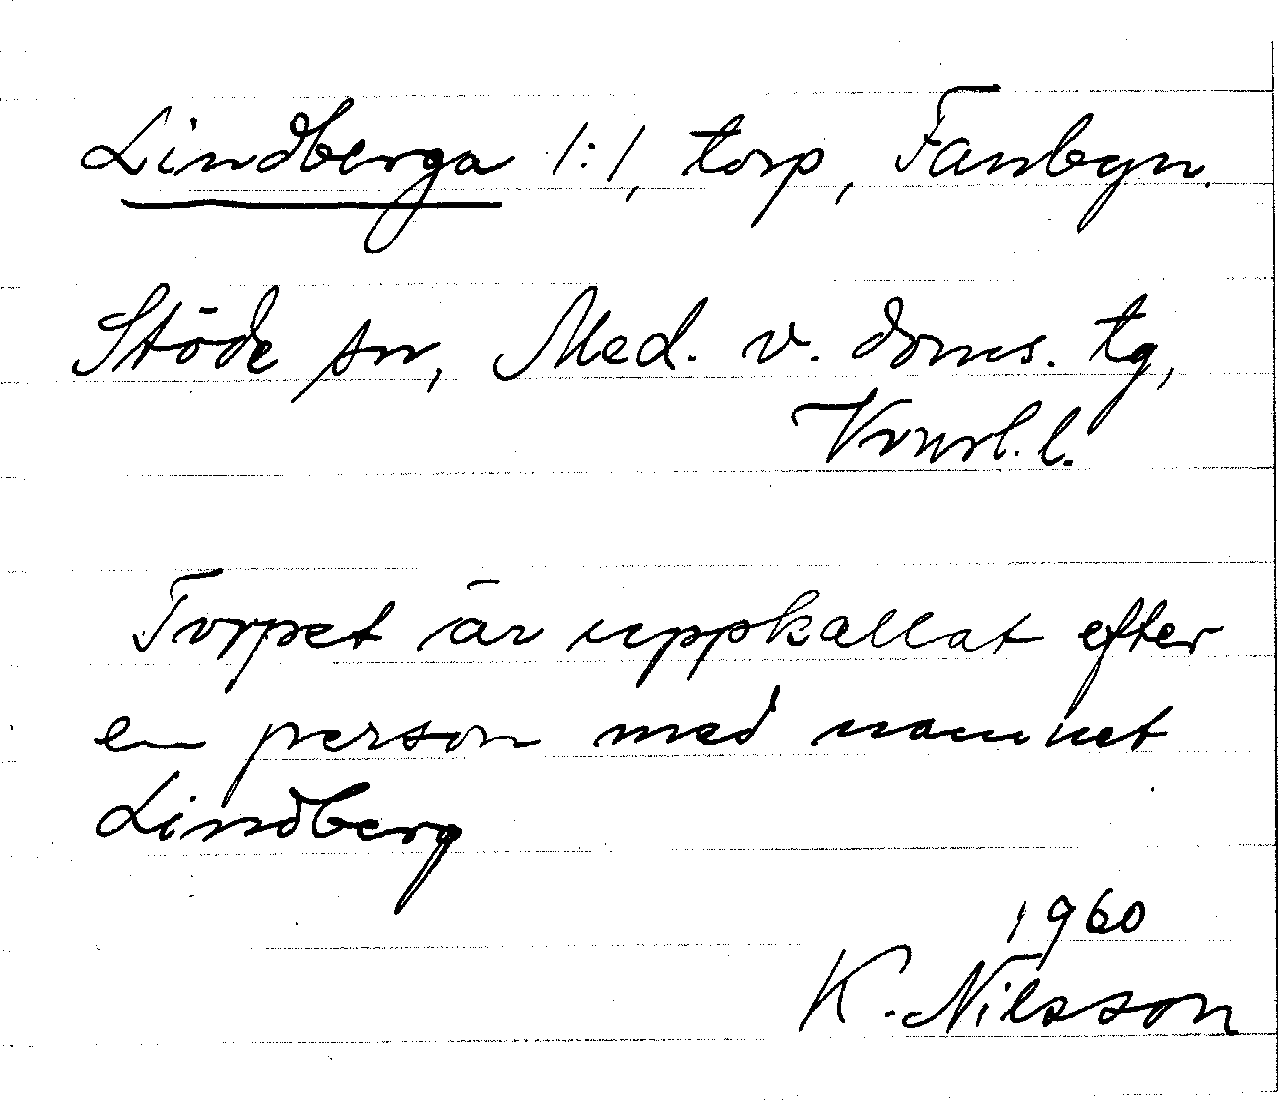 Lindberga 1:1, torp, Fanbyn.
Stöde sn, Med. v. doms. tg,
Vnorl. l.
Torpet är uppkallat efter
en person med namnet
Lindberg
1960
K. Nilsson